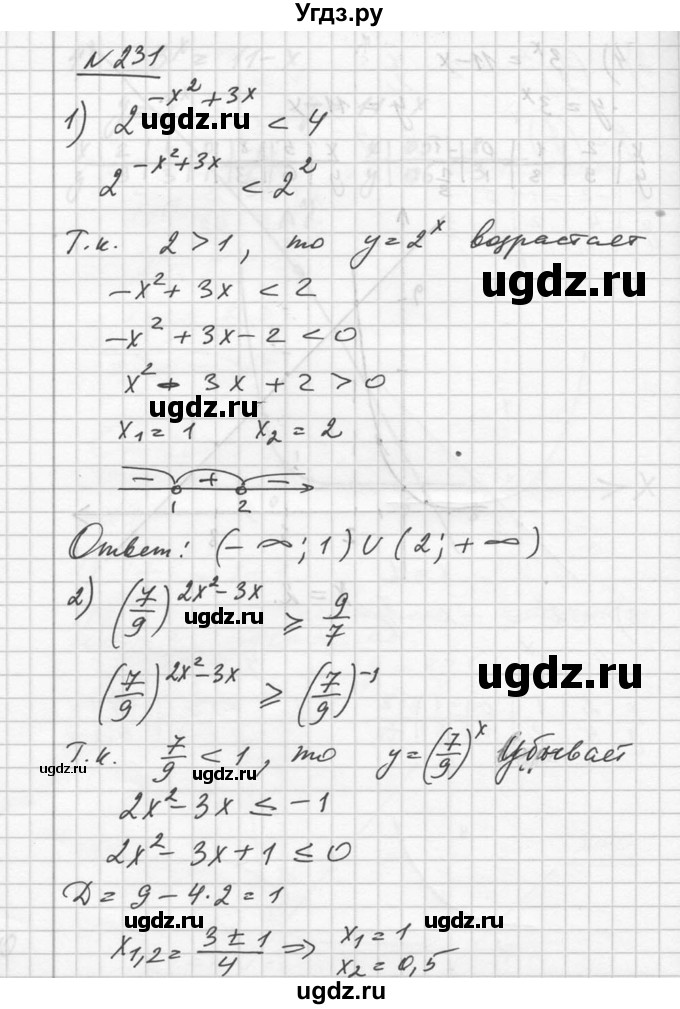 Угдз.ру
N 231
1) 2^(-x²+3x) < 4
ugdz.ru
2^(-x²+3x) < 2²
Т.к. 2 > 1, то y = 2^x возрастает
ugdz.ru
-x² + 3x < 2
-x² + 3x - 2 < 0
x² - 3x + 2 > 0
ugdz.ru
x₁ = 1 x₂ = 2
- + -
1 2
Ответ: (-∞; 1) ∪ (2; +∞)
2) (7/9)^(2x²-3x) ⩾ 9/7
ugdz.ru
(7/9)^(2x²-3x) ⩾ (7/9)^(-1)
ugdz.ru
Т.к. 7/9 < 1, то y = (7/9)^x убывает
ugdz.ru ugdz.ru
2x² - 3x ≤ -1
2x² - 3x + 1 ≤ 0
D = 9 - 4·2 = 1
ugdz.ru ugdz.ru
x₁,₂ = (3 ± 1)/4 ⇒ x₁ = 1
x₂ = 0,5
ugdz.ru